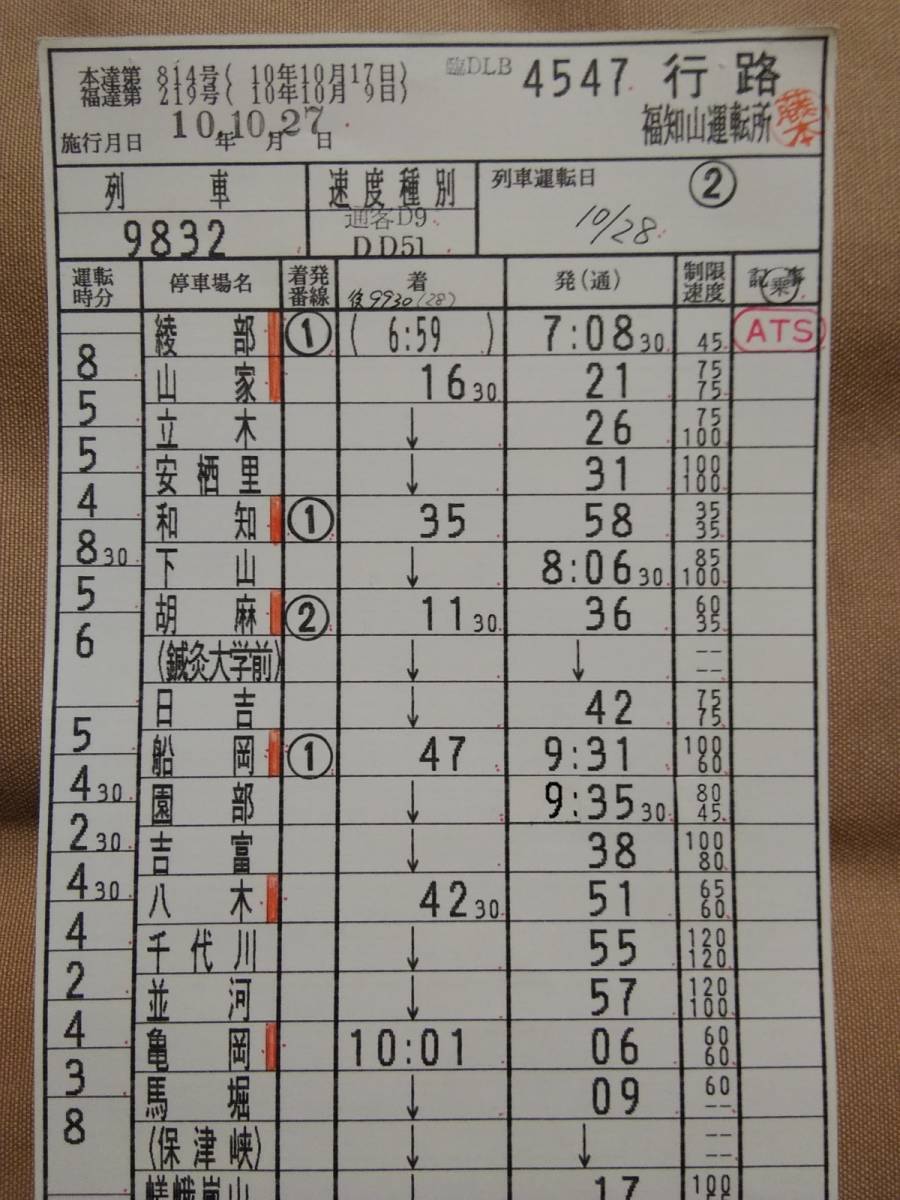 本達第 814号( 10年10月17日)
福達第 219号( 10年10月 9日)
臨DLB 4547 行路
施行月日 10年10月27日
福知山運転所 藤本
列車 速度種別 列車運転日 ②
9832 通客D9 DD51 10/28
運転時分 停車場名 着発番線 着 発(通) 制限速度 記事 乗
後9930(28)
綾部 ① ( 6:59 ) 7:08 30 45 ATS
8
山家 16 30 21 75 75
5
立木 ↓ 26 75 100
5
安栖里 ↓ 31 100 100
4
和知 ① 35 58 35 35
8 30
下山 ↓ 8:06 30 85 100
5
胡麻 ② 11 30 36 60 35
6
(鍼灸大学前) ↓ ↓ -- --
日吉 ↓ 42 75 75
5
船岡 ① 47 9:31 100 60
4 30
園部 ↓ 9:35 30 80 45
2 30
吉富 ↓ 38 100 80
4 30
八木 42 30 51 65 60
4
千代川 ↓ 55 120 120
2
並河 ↓ 57 120 100
4
亀岡 10:01 06 60 60
3
馬堀 ↓ 09 60 --
8
(保津峡) ↓ ↓ -- --
嵯峨嵐山 17 100